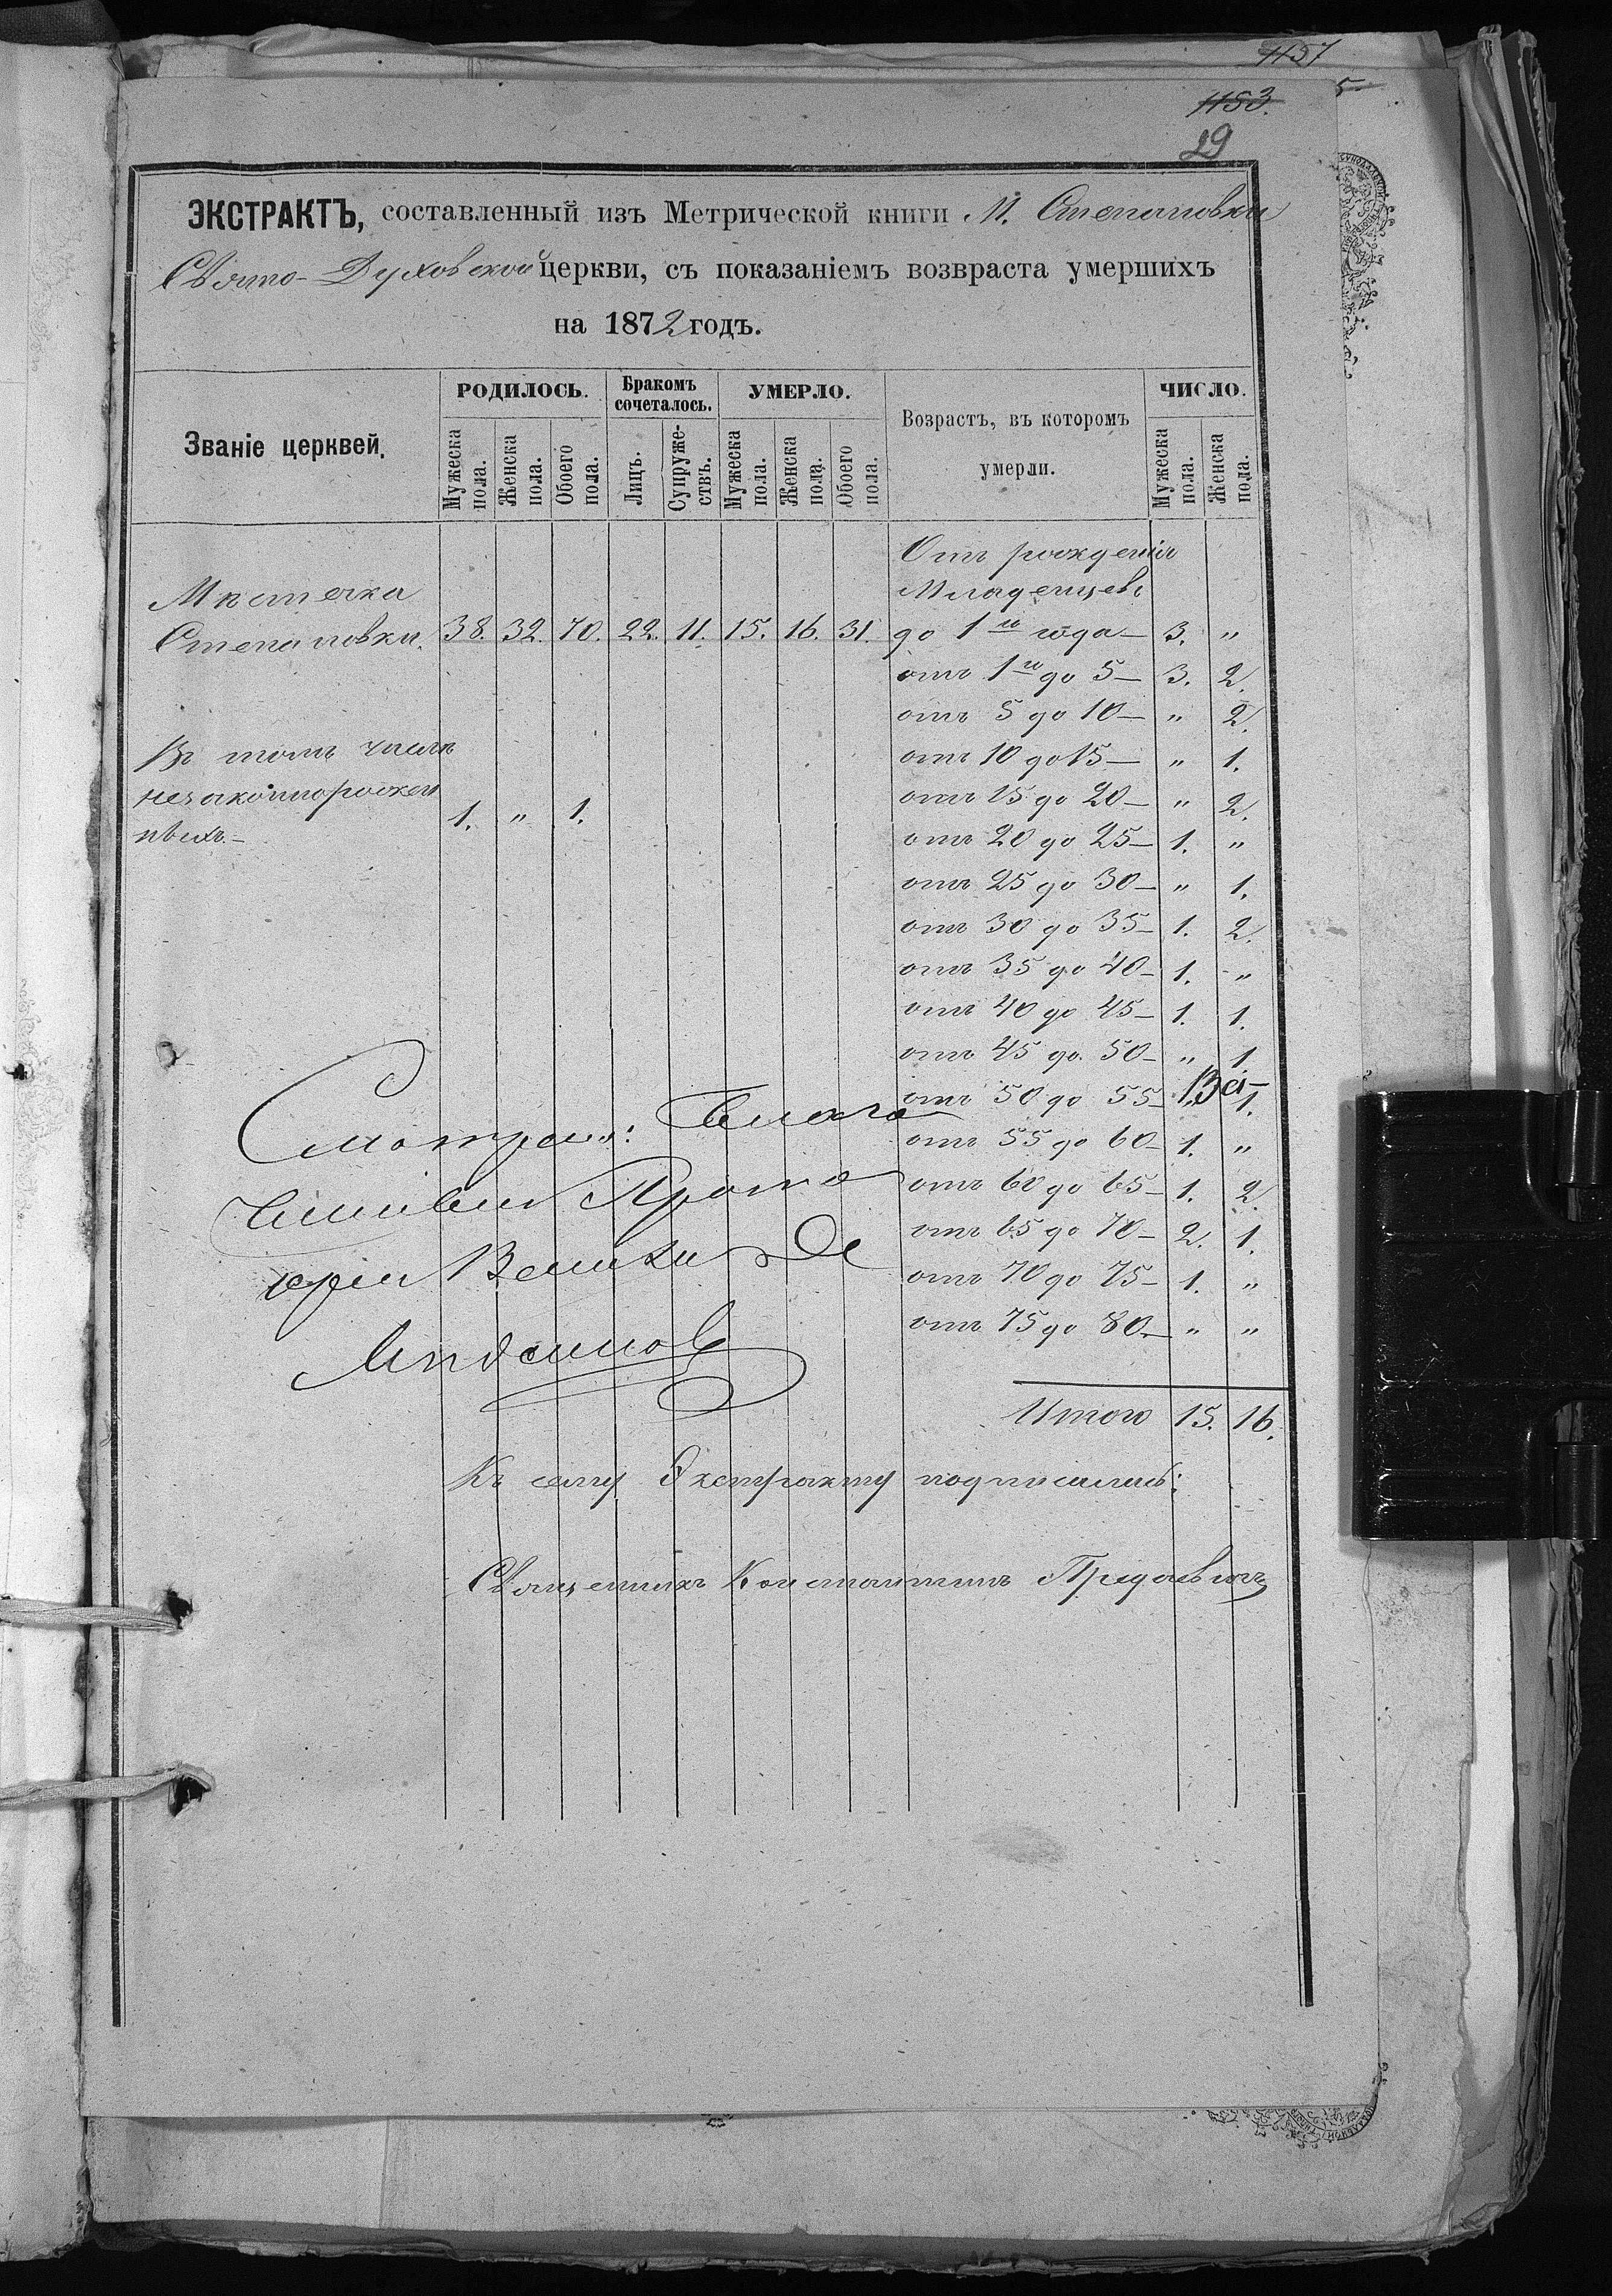 1137
1153.
29
5
ЭКСТРАКТЪ, составленный изъ Метрической книги М. Степановки
Свято-Духовской церкви, съ показаніемъ возвраста умершихъ
на 1872 годъ.
Званіе церквей.
РОДИЛОСЬ.
Бракомъ сочеталось.
УМЕРЛО.
Возрастъ, въ которомъ умерли.
ЧИСЛО.
Мужеска пола.
Женска пола.
Обоего пола.
Лицъ.
Супружествъ.
Мужеска пола.
Женска пола.
Обоего пола.
Мужеска пола.
Женска пола.
Отъ рожденія
Младенцевъ
Мѣстечка
Степановки. 38. 32. 70. 22. 11. 15. 16. 31. до 1го года— 3. "
отъ 1го до 5— 3. 2.
отъ 5 до 10— " 2.
Въ томъ числѣ
отъ 10 до 15— " 1.
незаконнорожден
ныхъ.— 1. " 1.
отъ 15 до 20— " 2.
отъ 20 до 25— 1. "
отъ 25 до 30— " 1.
отъ 30 до 35— 1. 2.
отъ 35 до 40— 1. "
отъ 40 до 45— 1. 1.
отъ 45 до 50— " 1.
отъ 50 до 55— " 1.
отъ 55 до 60— 1. "
отъ 60 до 65— 1. 2.
отъ 65 до 70— 2. 1.
отъ 70 до 75— 1. "
отъ 75 до 80.— " "
Смотрѣлъ: Благо
чинный Прото
іерей
Итого 15. 16.
Къ сему Экстракту подписались:
Священникъ Константинъ